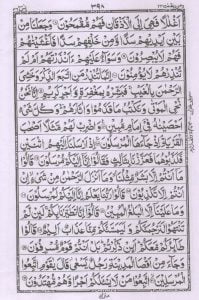 ٣٩٨
اَغْلٰلًا فَهِيَ اِلَى الْاَذْقَانِ فَهُمْ مُّقْمَحُوْنَ وَجَعَلْنَا مِنْۢ
بَيْنِ اَيْدِيْهِمْ سَدًّا وَّمِنْ خَلْفِهِمْ سَدًّا فَاَغْشَيْنٰهُمْ
فَهُمْ لَا يُبْصِرُوْنَ وَسَوَآءٌ عَلَيْهِمْ ءَاَنْذَرْتَهُمْ اَمْ لَمْ
تُنْذِرْهُمْ لَا يُؤْمِنُوْنَ اِنَّمَا تُنْذِرُ مَنِ اتَّبَعَ الذِّكْرَ وَخَشِيَ
الرَّحْمٰنَ بِالْغَيْبِ فَبَشِّرْهُ بِمَغْفِرَةٍ وَّاَجْرٍ كَرِيْمٍ اِنَّا نَحْنُ
نُحْيِ الْمَوْتٰى وَنَكْتُبُ مَا قَدَّمُوْا وَاٰثَارَهُمْ وَكُلَّ شَيْءٍ
اَحْصَيْنٰهُ فِيْٓ اِمَامٍ مُّبِيْنٍ وَاضْرِبْ لَهُمْ مَّثَلًا اَصْحٰبَ
الْقَرْيَةِ اِذْ جَآءَهَا الْمُرْسَلُوْنَ اِذْ اَرْسَلْنَآ اِلَيْهِمُ اثْنَيْنِ
فَكَذَّبُوْهُمَا فَعَزَّزْنَا بِثَالِثٍ فَقَالُوْٓا اِنَّآ اِلَيْكُمْ مُّرْسَلُوْنَ
قَالُوْا مَآ اَنْتُمْ اِلَّا بَشَرٌ مِّثْلُنَا وَمَآ اَنْزَلَ الرَّحْمٰنُ مِنْ شَيْءٍ اِنْ
اَنْتُمْ اِلَّا تَكْذِبُوْنَ قَالُوْا رَبُّنَا يَعْلَمُ اِنَّآ اِلَيْكُمْ لَمُرْسَلُوْنَ
وَمَا عَلَيْنَآ اِلَّا الْبَلٰغُ الْمُبِيْنُ قَالُوْٓا اِنَّا تَطَيَّرْنَا بِكُمْ لَئِنْ لَّمْ
تَنْتَهُوْا لَنَرْجُمَنَّكُمْ وَلَيَمَسَّنَّكُمْ مِّنَّا عَذَابٌ اَلِيْمٌ قَالُوْا
طَآئِرُكُمْ مَّعَكُمْ اَئِنْ ذُكِّرْتُمْ بَلْ اَنْتُمْ قَوْمٌ مُّسْرِفُوْنَ
وَجَآءَ مِنْ اَقْصَا الْمَدِيْنَةِ رَجُلٌ يَّسْعٰى قَالَ يٰقَوْمِ اتَّبِعُوا
الْمُرْسَلِيْنَ اتَّبِعُوْا مَنْ لَّا يَسْئَلُكُمْ اَجْرًا وَّهُمْ مُّهْتَدُوْنَ